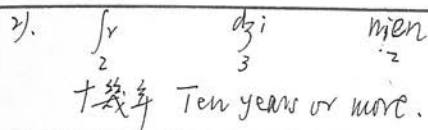 2). ʃr dʒi nien
2 3 2
十幾年 Ten years or more.